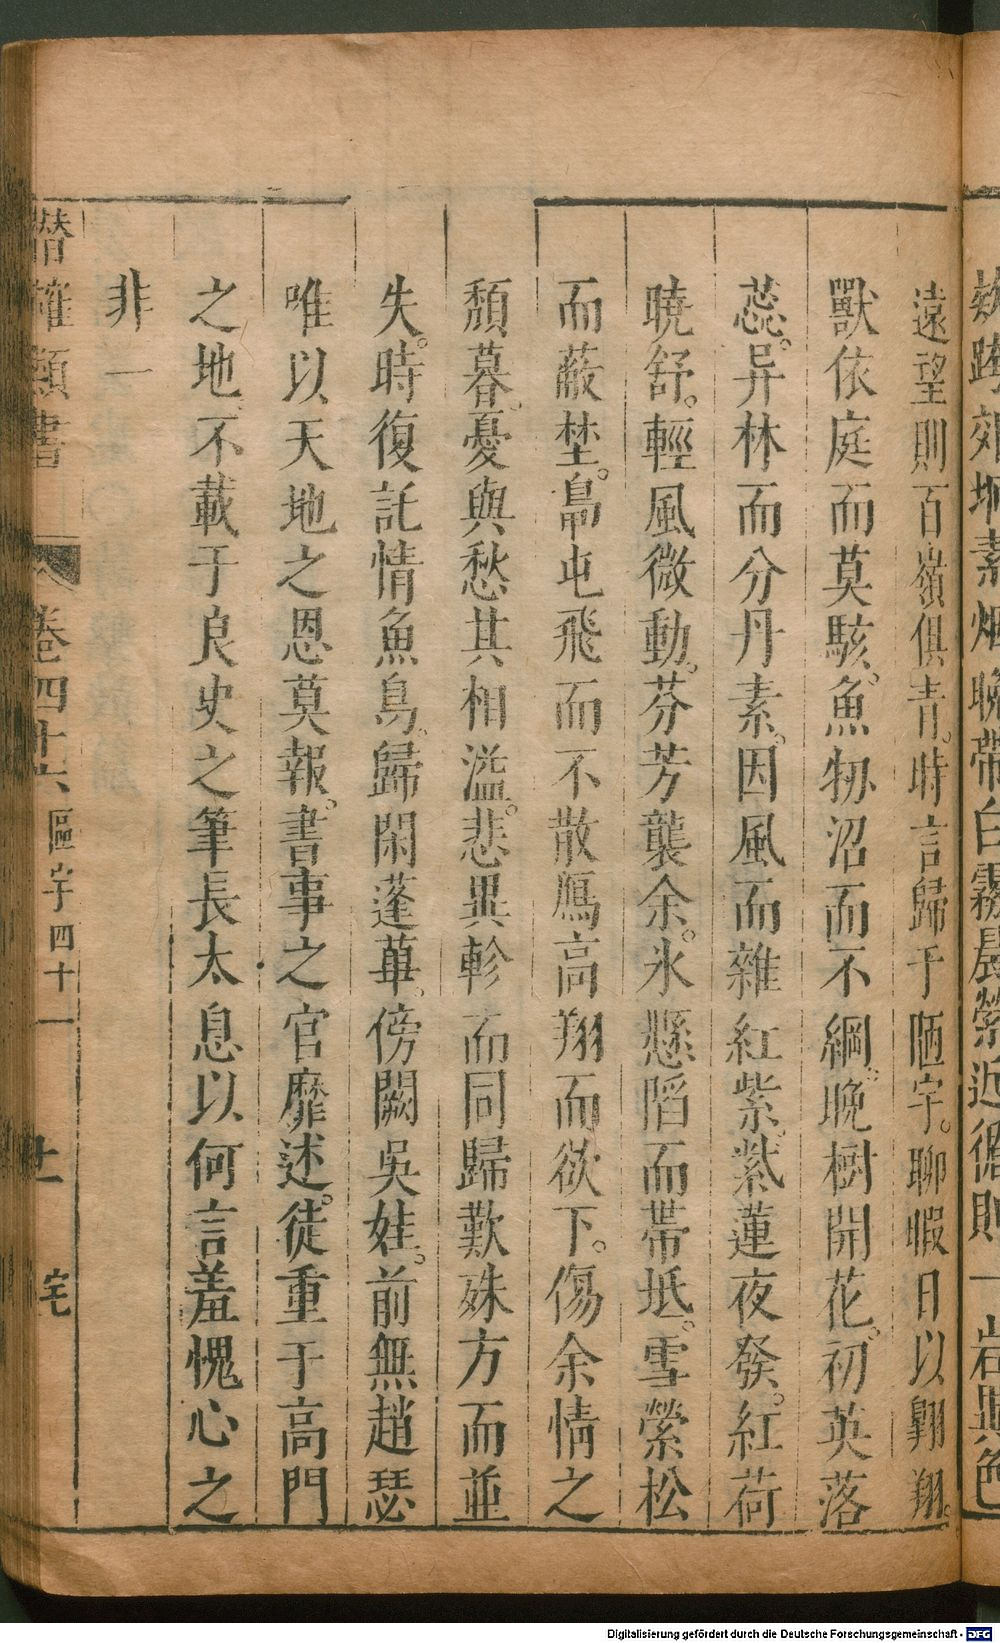 欺蹊郊坰素烟晚帶白霧晨縈近循則一岩異色
遠望則百嶺俱青。時言歸于陋宇。聊暇日以翱翔。
獸依庭而莫駭。魚牣沼而不綱。晚樹開花。初英落
蕊。异林而分丹素。因風而雜紅紫。紫蓮夜發。紅荷
曉舒。輕風微動。芬芳襲余。氷懸㟅而帶坻。雪縈松
而蔽埜。鳥屯飛而不散鴈高翔而欲下。傷余情之
頽暮。憂與愁其相溢。悲異軫而同歸歎殊方而並
失。時復託情魚鳥。歸閑蓬蓽。傍闕吳娃。前無趙瑟
唯以天地之恩莫報。書事之官靡述。徒重于高門
之地不載于良史之筆長太息以何言羞愧心之
非一
潛確類書
卷四十六
區宇四十一
宅
Digitalisierung gefördert durch die Deutsche Forschungsgemeinschaft - DFG